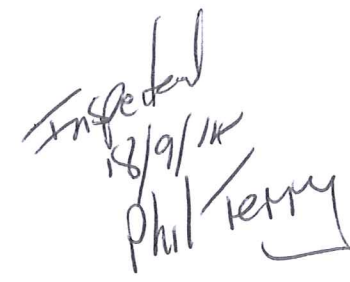 Inspected
18/9/14
Phil Terry